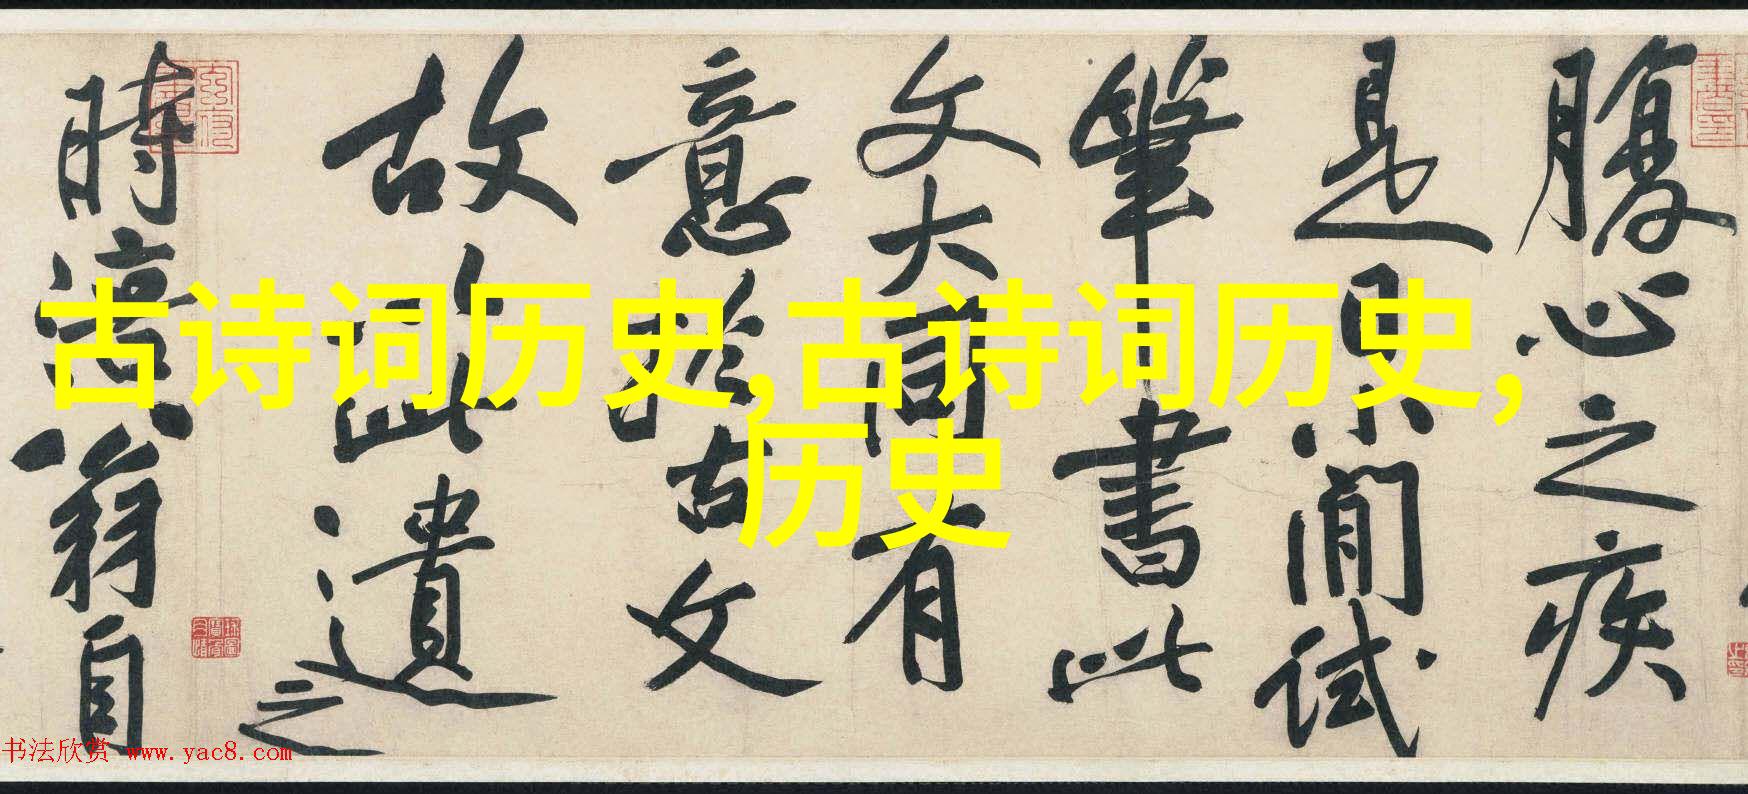 腹心之疾
是果閒試
筆書此
文大同有
意於古文
故此遺之
時涪翁自
古诗词历史,古诗词历史,
历史
书法欣赏 www.yac8.com